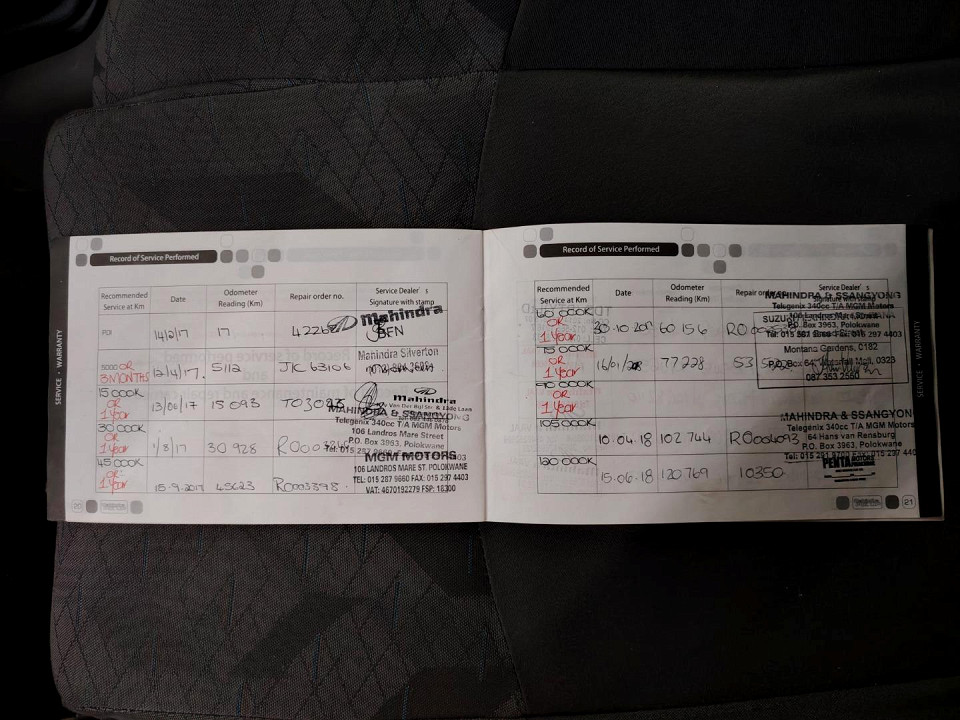 Record of Service Performed
Recommended Service at Km
Date
Odometer Reading (Km)
Repair order no.
Service Dealer's Signature with stamp
PDI
14/2/17
17
Mahindra
5000 OR
3 MONTHS
12/4/17.
5112
JIC 63106
Mahindra Silverton
15 000K
OR
1 Year
13/06/17
15 093
Mahindra
30 000K
OR
1 Year
1/8/17
30 928
MAHINDRA & SSANGYONG
Telegenix 340cc T/A MGM Motors
106 Landros Mare Street
P.O. Box 3963, Polokwane
45 000K
OR
1 Year
15-9-2017
45623
R0003398
MGM MOTORS
106 LANDROS MARE ST. POLOKWANE
TEL: 015 287 9660 FAX: 015 297 4403
VAT: 4670192279 FSP: 18300
SERVICE • WARRANTY
20
Record of Service Performed
Recommended Service at Km
Date
Odometer Reading (Km)
Service Dealer's
Signature with stamp
60 000K
OR
1 Year
30-10-2017
60 156
MAHINDRA & SSANGYONG
Telegenix 340cc T/A MGM Motors
P.O. Box 3963, Polokwane
015 297 4403
SUZUKI
75 000K
OR
1 Year
77 228
Montana Gardens, 0182
087 353 2550
90 000K
OR
1 Year
105 000K
10.04.18
102 744
R0004093
MAHINDRA & SSANGYONG
Telegenix 340cc T/A MGM Motors
64 Hans van Rensburg
P.O. Box 3963, Polokwane
120 000K
15.06.18
120 769
10350
PENTA MOTORS
SERVICE • WARRANTY
21